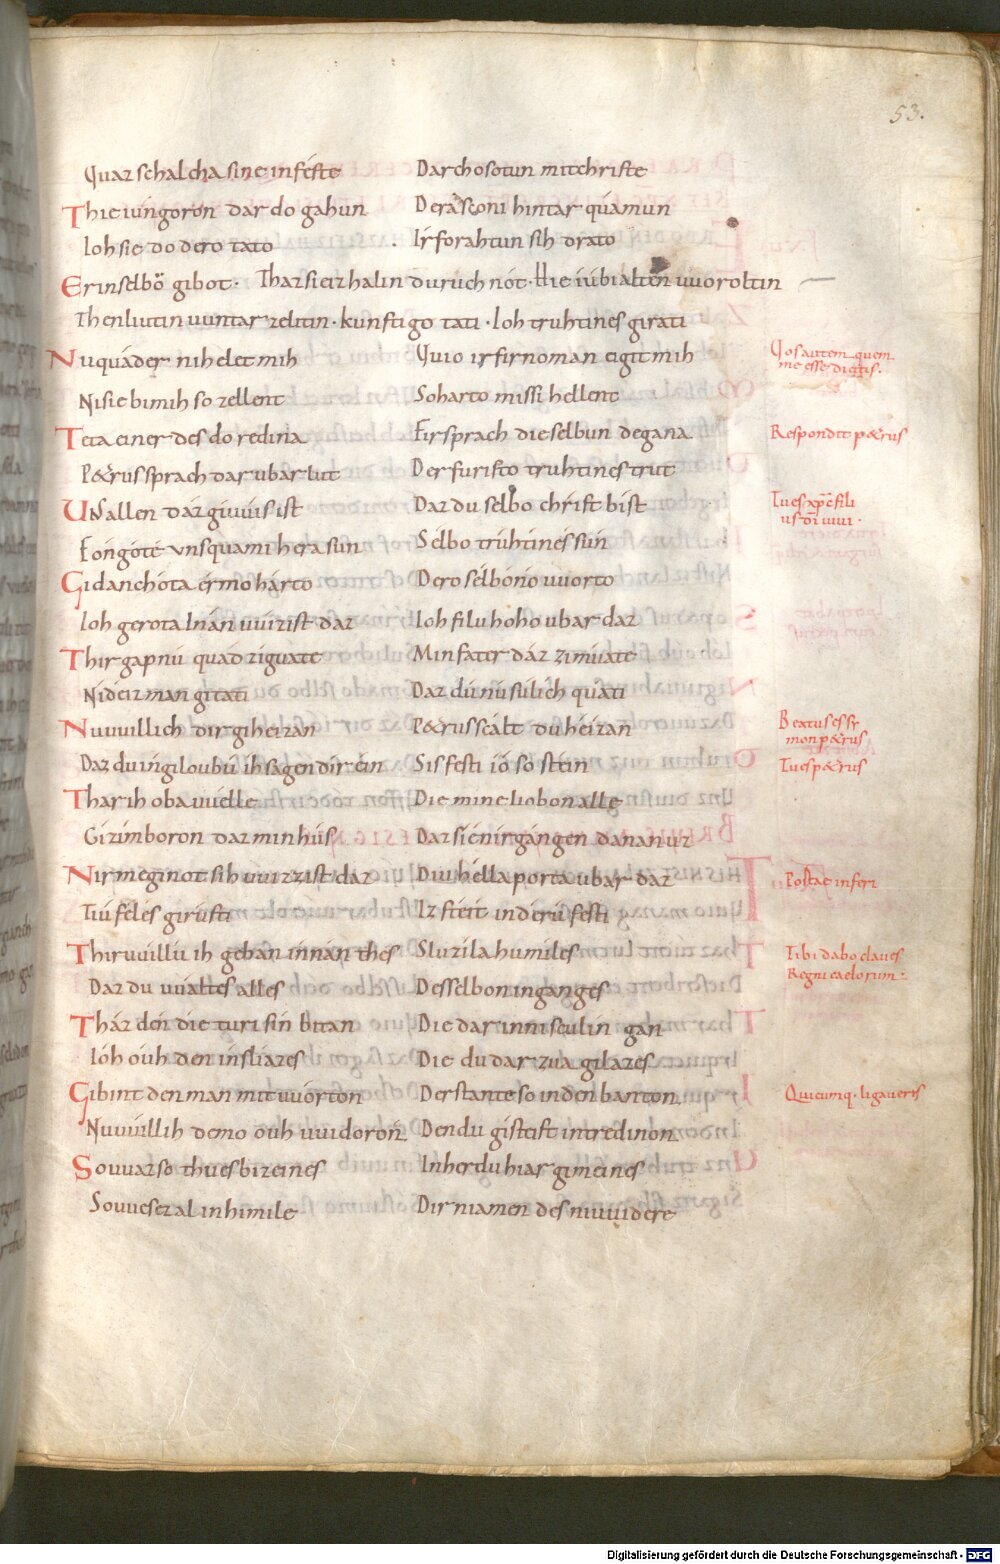 53.
Quaz schalcha sine in féste Dar chosotun mit christe
Thie iungoron dar do gahun Dera sconi hintar quamun
Ioh sie do dero tato Irforahtun sih drato
Er in selbo gibot · Thaz sie iz halin duruch not · Hie iu bi alten uuoroltin
Then liutin uuntar zeltin · kunftigo tati · Ioh truhtines girati
Nu quader nih elet mih Quio ir firnoman eigit mih
Nisie bi mih so zellent So harto missi hellent
Teta einer des do redina Er sprach die selbun degana
Petrus sprach dar ubar lut Der furisto truhtines trut
UNs allen daz giuuis ist Daz du selbo christ bist
Fon gote uns quami hera sun Selbo truhtines sun
Gidanchota er mo harto Dero selbono uuorto
Ioh gerota Inan uuizist daz Ioh filu hoho ubar daz
Thir gap nu quad ziguate Min fater daz zimuate
Nideiz man gitati Daz du nu sulich quati
Nu uuillich dir giheizan Petrus scalt du heizan
Daz du in giloubu ih sagen dir ein Sis festi io so stein
Thar ih oba uuelle Die mine liobon alle
Gizimboron daz min hus Daz sie nirgangen danan uz
Nirmeginot sih uuizzist daz Diu hella porta ubar daz
Tiufeles girusti Iz steit in deru festi
Thir uuillu ih geban innan thes Sluzila humiles
Daz du uualtes alles Desselbon inganges
Thaz den die turi sin bitan Die dar inni sculin gan
Ioh ouh den insliazes Die du dar zua gilazes
Gibint den man mit uuorton Der stante so in den banton
Nu uuillih demo ouh uuidoron Den du gisteft int redinon
So uuaz so thu es bizeines In herdu hiar gimeines
So uuesez al in himile Dir niamen des ni uuidere
Qos autem quem
me esse dicitis.
Respondit petrus
Tu es xpc fili
us di uiui ·
Beatus es sy
mon petrus
Tu es petrus
Portae inferi
Tibi dabo claues
Regni caelorum :
Quicumq · ligaueris
Digitalisierung gefördert durch die Deutsche Forschungsgemeinschaft - DFG